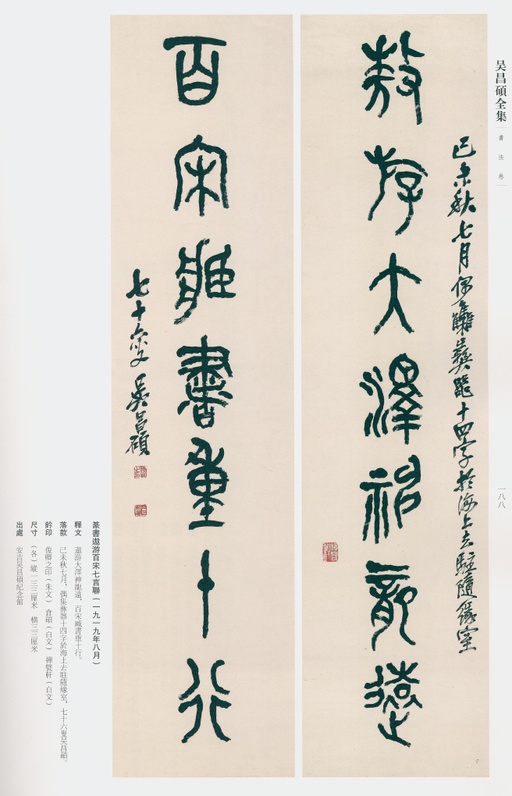 吴昌碩全集
書法卷
一八八
己未秋七月偶集彝器十四字於海上去駐隨緣室
敖游大澤神龍遠
百宋書重十行
七十六叟吳昌碩
篆書遨游百宋七言聯(一九一九年八月)
釋文 遨游大澤神龍遠,百宋書重十行。
落款 己未秋七月,偶集彝器十四字於海上去駐隨緣室,七十六叟吴昌碩。
鈐印 俊卿之印(朱文) 倉碩(白文) 禪甓軒(白文)
尺寸 (各)縱一三三厘米 橫三三厘米
出處 安吉吴昌碩紀念館